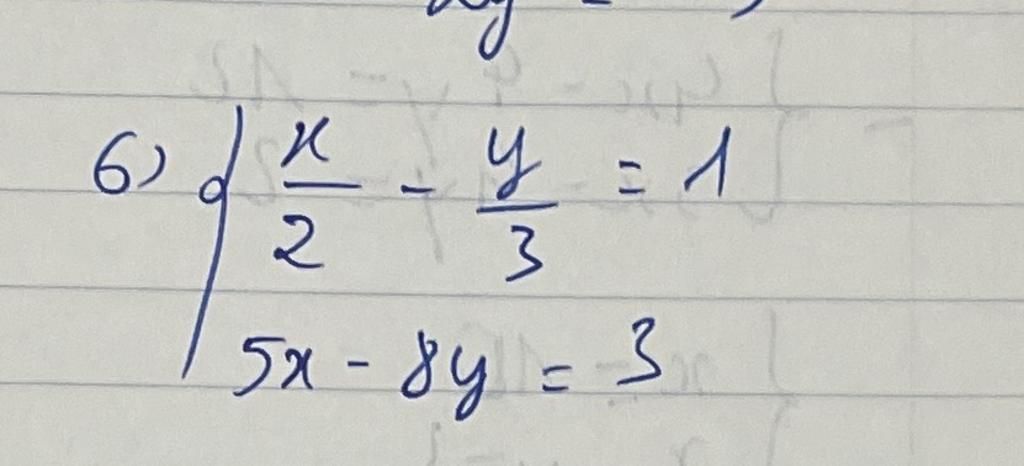 6) { x/2 - y/3 = 1
5x - 8y = 3